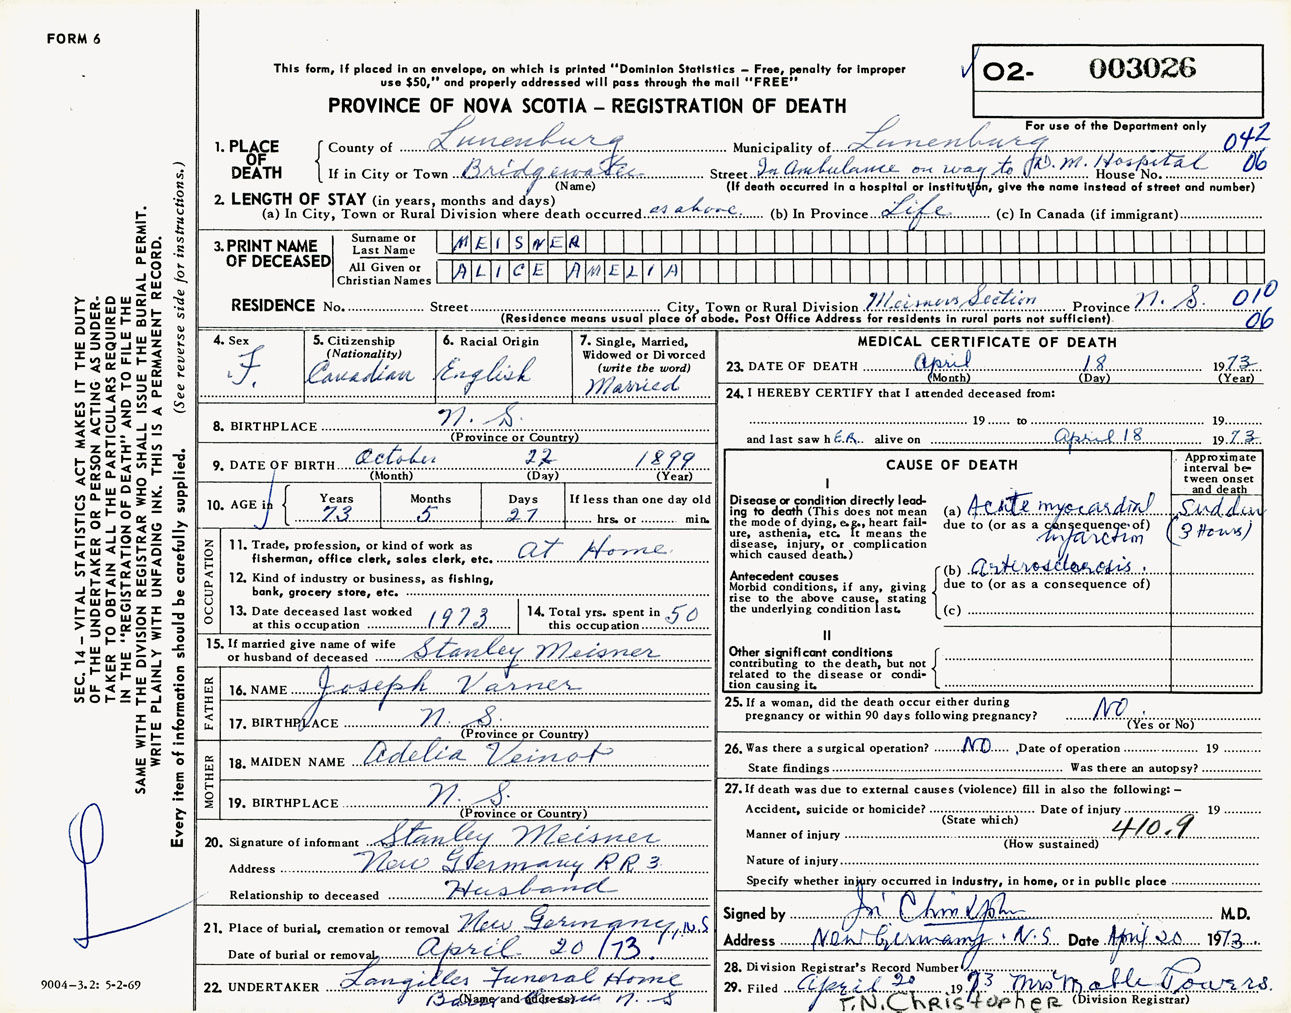 FORM 6
This form, if placed in an envelope, on which is printed "Dominion Statistics – Free, penalty for improper
use $50," and properly addressed will pass through the mail "FREE"
PROVINCE OF NOVA SCOTIA – REGISTRATION OF DEATH
02- 003026
For use of the Department only
1. PLACE OF DEATH
County of Lunenburg Municipality of Lunenburg 042
If in City or Town Bridgewater Street In Ambulance on way to D.M. Hospital House No. 06
(Name) (If death occurred in a hospital or institution, give the name instead of street and number)
2. LENGTH OF STAY (in years, months and days)
(a) In City, Town or Rural Division where death occurred as above (b) In Province Life (c) In Canada (if immigrant)
3. PRINT NAME OF DECEASED
Surname or Last Name MEISNER
All Given or Christian Names ALICE AMELIA
RESIDENCE No. Street City, Town or Rural Division Meisners Section Province N. S. 010
(Residence means usual place of abode. Post Office Address for residents in rural parts not sufficient) 06
4. Sex F.
5. Citizenship (Nationality) Canadian
6. Racial Origin English
7. Single, Married, Widowed or Divorced (write the word) Married
8. BIRTHPLACE N. S.
(Province or Country)
9. DATE OF BIRTH October 22 1899
(Month) (Day) (Year)
10. AGE in Years 73 Months 5 Days 27 If less than one day old
hrs. or min.
OCCUPATION
11. Trade, profession, or kind of work as
fisherman, office clerk, sales clerk, etc. at Home
12. Kind of industry or business, as fishing,
bank, grocery store, etc.
13. Date deceased last worked at this occupation 1973
14. Total yrs. spent in this occupation 50
15. If married give name of wife
or husband of deceased Stanley Meisner
FATHER
16. NAME Joseph Varner
17. BIRTHPLACE N. S.
(Province or Country)
MOTHER
18. MAIDEN NAME Adelia Veinot
19. BIRTHPLACE N. S.
(Province or Country)
20. Signature of informant Stanley Meisner
Address New Germany RR 3
Relationship to deceased Husband
21. Place of burial, cremation or removal New Germany, N.S
Date of burial or removal April 20/73.
22. UNDERTAKER Langilles Funeral Home
(Name and address) N. S
MEDICAL CERTIFICATE OF DEATH
23. DATE OF DEATH April 18 1973
(Month) (Day) (Year)
24. I HEREBY CERTIFY that I attended deceased from:
19 to 19
and last saw hER alive on April 18 1973
CAUSE OF DEATH
Approximate interval between onset and death
I
Disease or condition directly leading to death (This does not mean the mode of dying, e.g., heart failure, asthenia, etc. It means the disease, injury, or complication which caused death.)
(a) Acute myocardial infarction Sudden (3 Hours)
due to (or as a consequence of)
Antecedent causes
Morbid conditions, if any, giving rise to the above cause, stating the underlying condition last.
(b) arterosclerosis.
due to (or as a consequence of)
(c)
II
Other significant conditions
contributing to the death, but not related to the disease or condition causing it.
25. If a woman, did the death occur either during
pregnancy or within 90 days following pregnancy? NO.
(Yes or No)
26. Was there a surgical operation? NO Date of operation 19
State findings Was there an autopsy?
27. If death was due to external causes (violence) fill in also the following: –
Accident, suicide or homicide? Date of injury 19
(State which) 410.9
Manner of injury
(How sustained)
Nature of injury
Specify whether injury occurred in industry, in home, or in public place
Signed by M.D.
Address New Germany. N.S Date April 20 1973
28. Division Registrar's Record Number
29. Filed April 20 1973 Mrs Mable Powers.
T.N. CHRISTOPHER (Division Registrar)
SEC. 14 – VITAL STATISTICS ACT MAKES IT THE DUTY
OF THE UNDERTAKER OR PERSON ACTING AS UNDER-
TAKER TO OBTAIN ALL THE PARTICULARS REQUIRED
IN THE "REGISTRATION OF DEATH" AND TO FILE THE
SAME WITH THE DIVISION REGISTRAR WHO SHALL ISSUE THE BURIAL PERMIT.
WRITE PLAINLY WITH UNFADING INK. THIS IS A PERMANENT RECORD.
Every item of information should be carefully supplied. (See reverse side for instructions.)
9004-3.2: 5-2-69